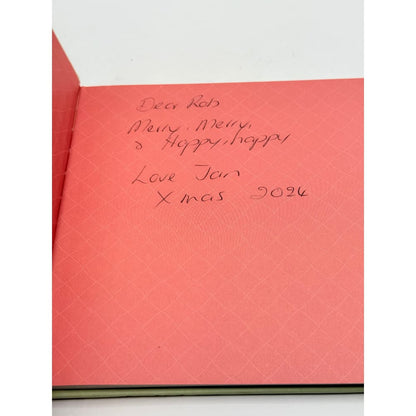 Dear Rob
Merry, Merry,
& Happy, happy
Love Jan
Xmas 2024